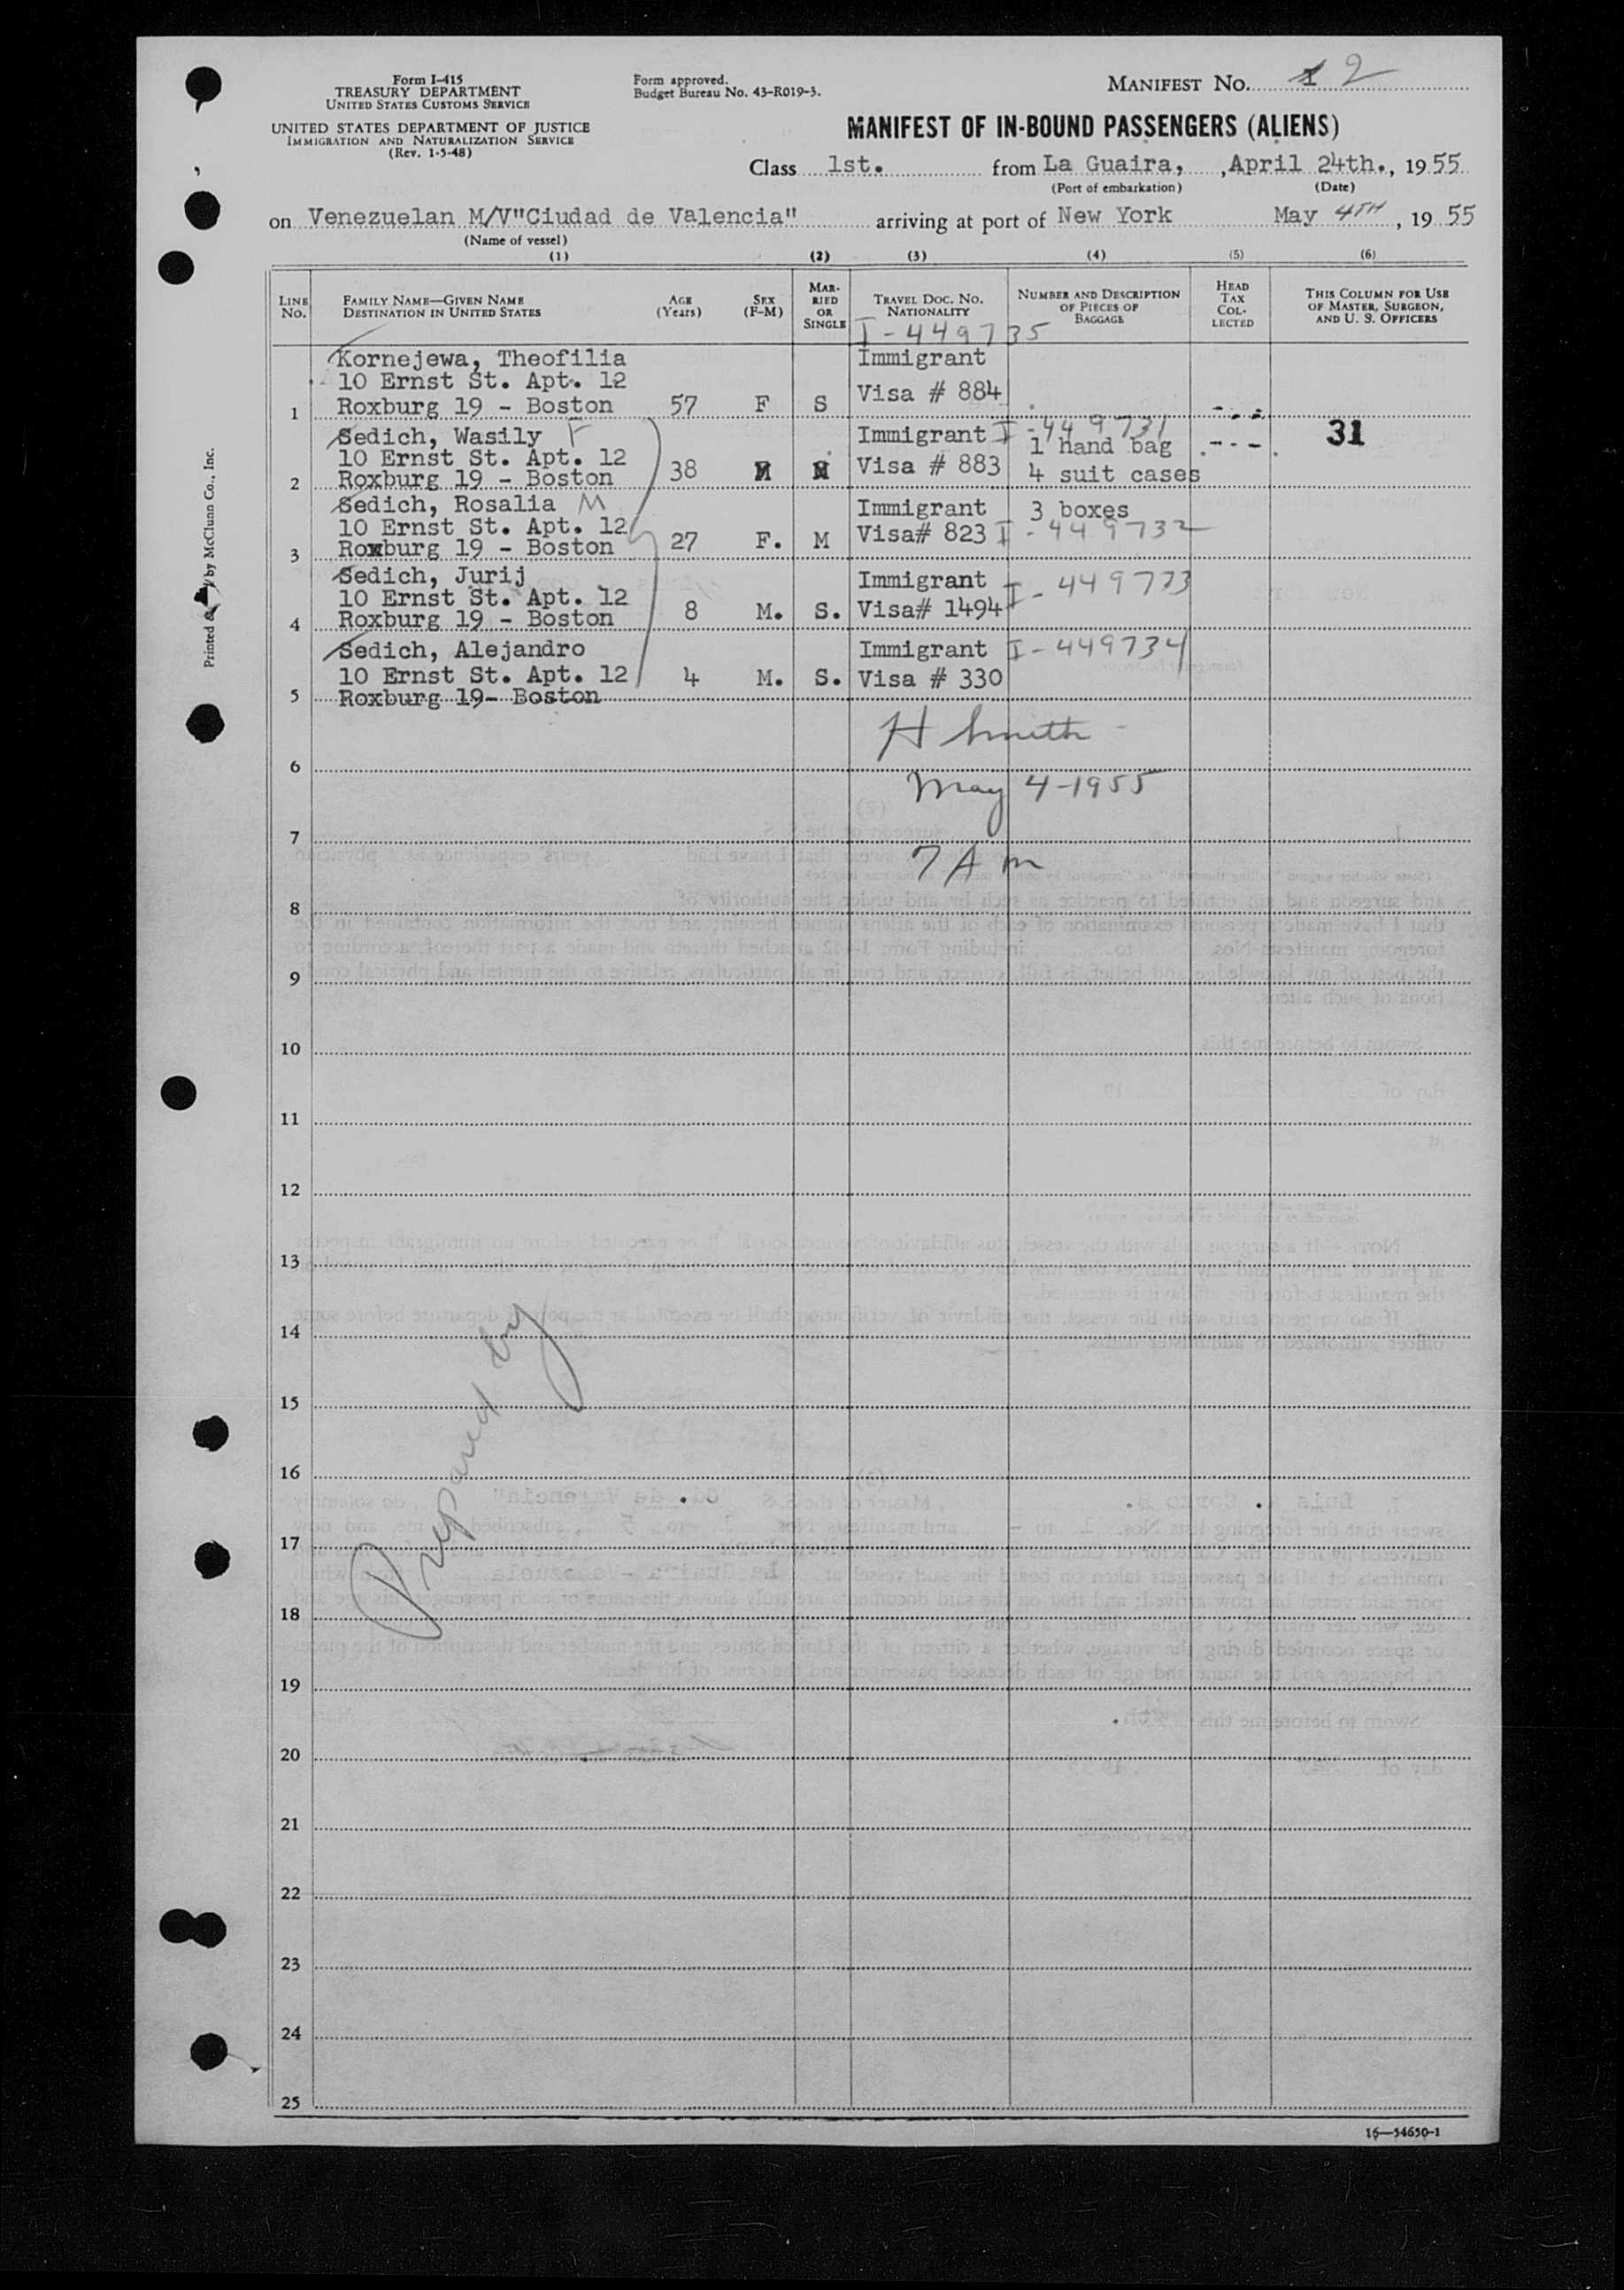 Form I-415
TREASURY DEPARTMENT
UNITED STATES CUSTOMS SERVICE
UNITED STATES DEPARTMENT OF JUSTICE
IMMIGRATION AND NATURALIZATION SERVICE
(Rev. 1-5-48)
Form approved.
Budget Bureau No. 43-R019-3.
MANIFEST No. 1 2
MANIFEST OF IN-BOUND PASSENGERS (ALIENS)
Class 1st. from La Guaira, , April 24th., 1955
(Port of embarkation) (Date)
on Venezuelan M/V"Ciudad de Valencia" arriving at port of New York May 4TH, 1955
(Name of vessel)
(1) (2) (3) (4) (5) (6)
LINE No.
FAMILY NAME—GIVEN NAME
DESTINATION IN UNITED STATES
AGE (Years)
SEX (F-M)
MARRIED OR SINGLE
TRAVEL DOC. No.
NATIONALITY
NUMBER AND DESCRIPTION OF PIECES OF BAGGAGE
HEAD TAX COLLECTED
THIS COLUMN FOR USE OF MASTER, SURGEON, AND U. S. OFFICERS
I-449735
Kornejewa, Theofilia Immigrant
10 Ernst St. Apt. 12 Visa # 884
1 Roxburg 19 - Boston 57 F S - - -
Sedich, Wasily F Immigrant I-449731
10 Ernst St. Apt. 12 Visa # 883 1 hand bag - - - 31
2 Roxburg 19 - Boston 38 M M 4 suit cases
Sedich, Rosalia M Immigrant 3 boxes
10 Ernst St. Apt. 12 Visa# 823 I-449732
3 Roxburg 19 - Boston 27 F. M
Sedich, Jurij Immigrant I-449733
10 Ernst St. Apt. 12 Visa# 1494
4 Roxburg 19 - Boston 8 M. S.
Sedich, Alejandro Immigrant I-449734
10 Ernst St. Apt. 12 4 M. S. Visa # 330
5 Roxburg 19- Boston
H Smith
6
May 4-1955
7
7 A m
8
9
10
11
12
13
14
15
16
17
18
19
20
21
22
23
24
25
Prepared by
Printed by McClunn Co., Inc.
16—54650-1